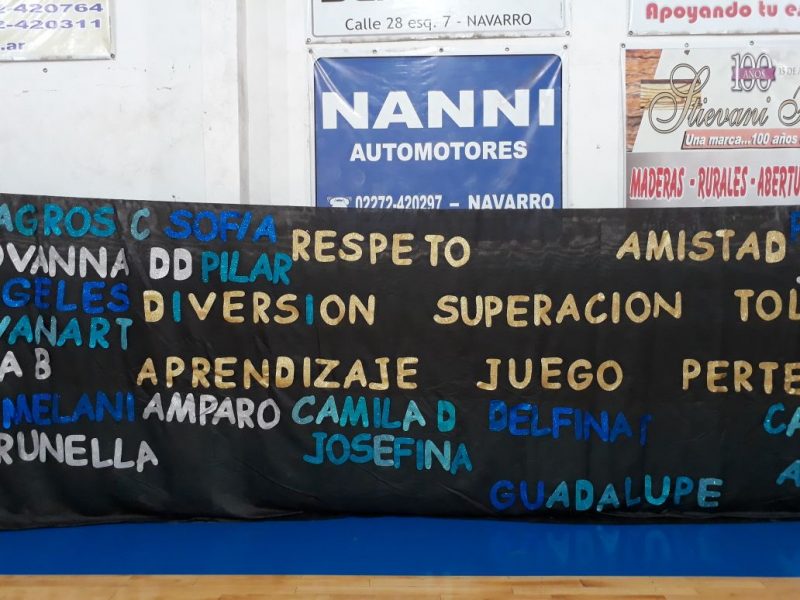 2-420764
02-420311
.ar
Calle 28 esq. 7 - NAVARRO
Apoyando tu
NANNI
AUTOMOTORES
02272-420297 – NAVARRO
100
AÑOS
Stievani
Una marca...100 años
MADERAS - RURALES - ABERTU
AGROS C SOFIA RESPETO AMISTAD
OVANNA DD PILAR
GELES DIVERSION SUPERACION TOL
YANART
A B APRENDIZAJE JUEGO PERTE
MELANI AMPARO CAMILA D DELFINA CA
RUNELLA JOSEFINA A
GUADALUPE